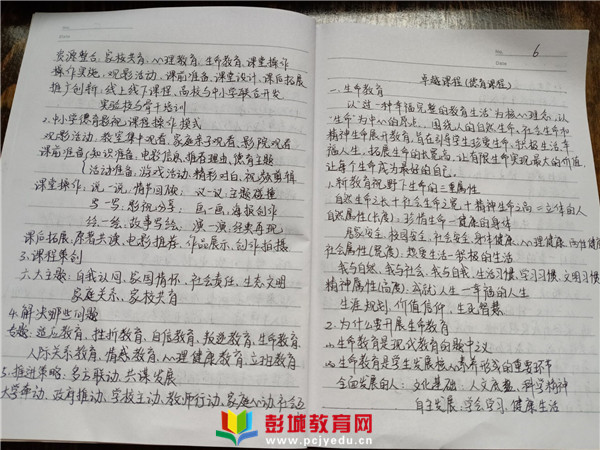 资源整合、家校共育、心理教育、生命教育、课堂操作
操作实施、观影活动、课前准备、课堂设计、课后拓展
推广创新、线上线下课程、高校与中小学联合开发
实验校与骨干培训
2.中小学德育影视课程操作模式
观影活动、教室集中观看、家庭亲子观看、影院观看
课前准备(知识准备、电影信息、推荐理由、德育主题
(活动准备、游戏活动、精彩对白、视频剪辑
课堂操作、说一说、情节回放; 议一议:主题碰撞
写一写、影视分享; 画一画、海报创作
绘一绘、故事写绘 演一演、经典再现
课后拓展、原著共读、电影推荐、作品展示、创作拍摄
3.课程策划
六大主题:自我认同、家国情怀、社会责任、生态文明
家庭关系、家校共育
4.解决哪些问题
专题:适应教育、挫折教育、自信教育、叛逆教育、生命教育、
人际关系教育、情感教育、心理健康教育、立班教育
5.推进策略:多方联动、共谋发展
大学牵动、政府推动、学校主动、教师行动、家庭心动、社会互
No. 6
Date
卓越课程(德育课程)
一.生命教育
以“过一种幸福完整的教育生活”为核心理念,以
“生命”为中心的原点、围绕人的自然生命、社会生命和
精神生命展开教育,旨在引导学生珍爱生命、积极生活、幸
福人生,拓展生命的长宽高,让有限生命实现最大的价值
让每个生命成为最好的自己。
1.新教育视野下生命的三重属性
自然生命之长+社会生命之宽+精神生命之高=立体的人
自然属性(长度):珍惜生命—健康的身体
居家安全、校园安全、社会安全、身体健康、心理健康、两性健
社会属性(宽度):热爱生活—积极的生活
我与自然、我与社会、我与自我、生活习惯、学习习惯、文明习惯
精神属性(高度):成就人生—幸福的人生
生涯规划、价值信仰、生死智慧
2.为什么要开展生命教育
(1)生命教育是现代教育的题中之义
(2)生命教育是学生发展核心素养形成的重要环节
全面发展的人: 文化基础:人文底蕴、科学精神
自主发展:学会学习、健康生活
彭城教育网
www.pcjyedu.cn